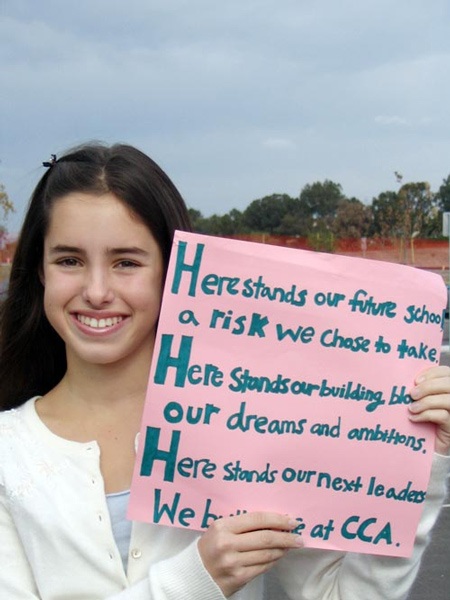 Here stands our future school
a risk we chose to take.
Here Stands our building
our dreams and ambitions.
Here stands our next leaders
We at CCA.